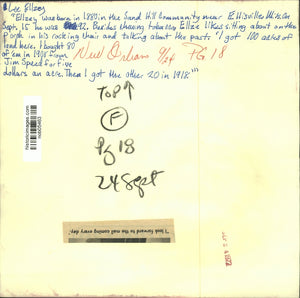 Lee Ellzey
"Ellzey was born in 1880 in the Sand Hill Community near Ellisville Miss on
Sept. 15 Tax 92. Besides chewing tobacco Ellzie likes sitting about on the
porch in his rocking chair and talking about the past. "I got 100 acres of
land here. I bought 80
of em in 1908 from
Jim Speed for five
dollars an acre. Then I got the other 20 in 1918."
New Orleans 9/24 PG 18
TOP↑
F
Pg 18
24 Sept
"I look forward to the mail coming every day.
historicimages.com